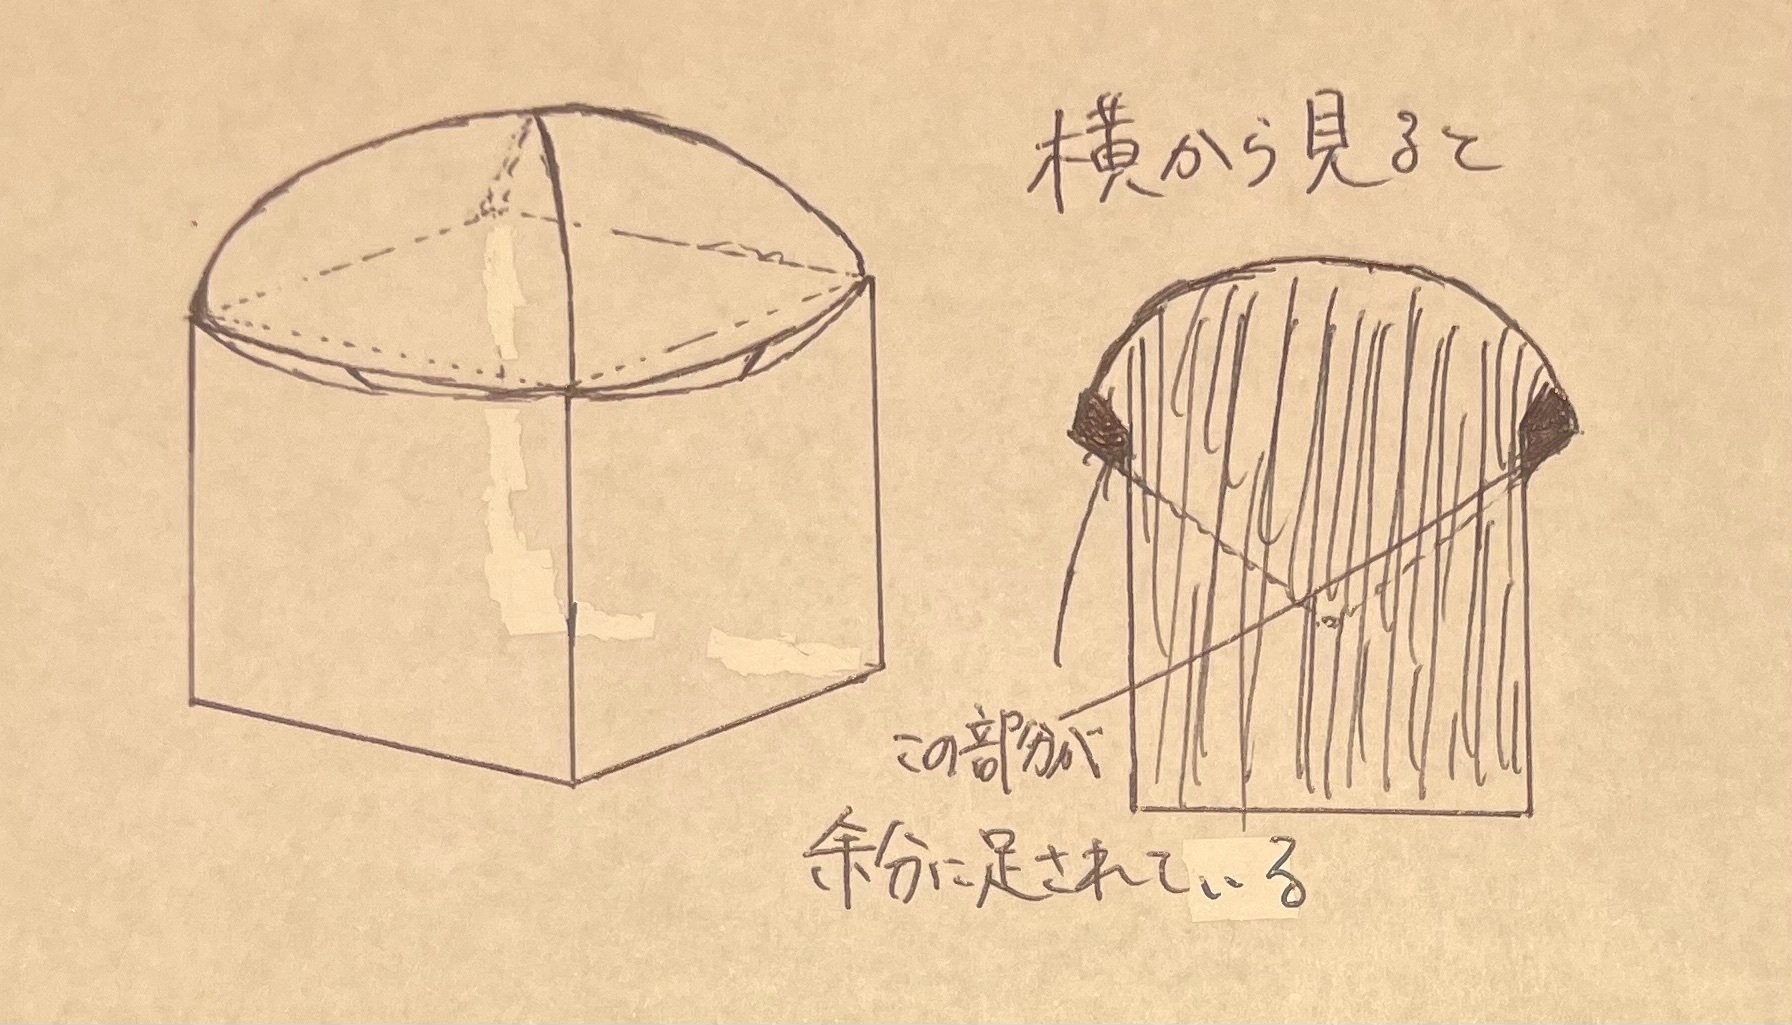 横から見ると
この部分が
余分に足されている